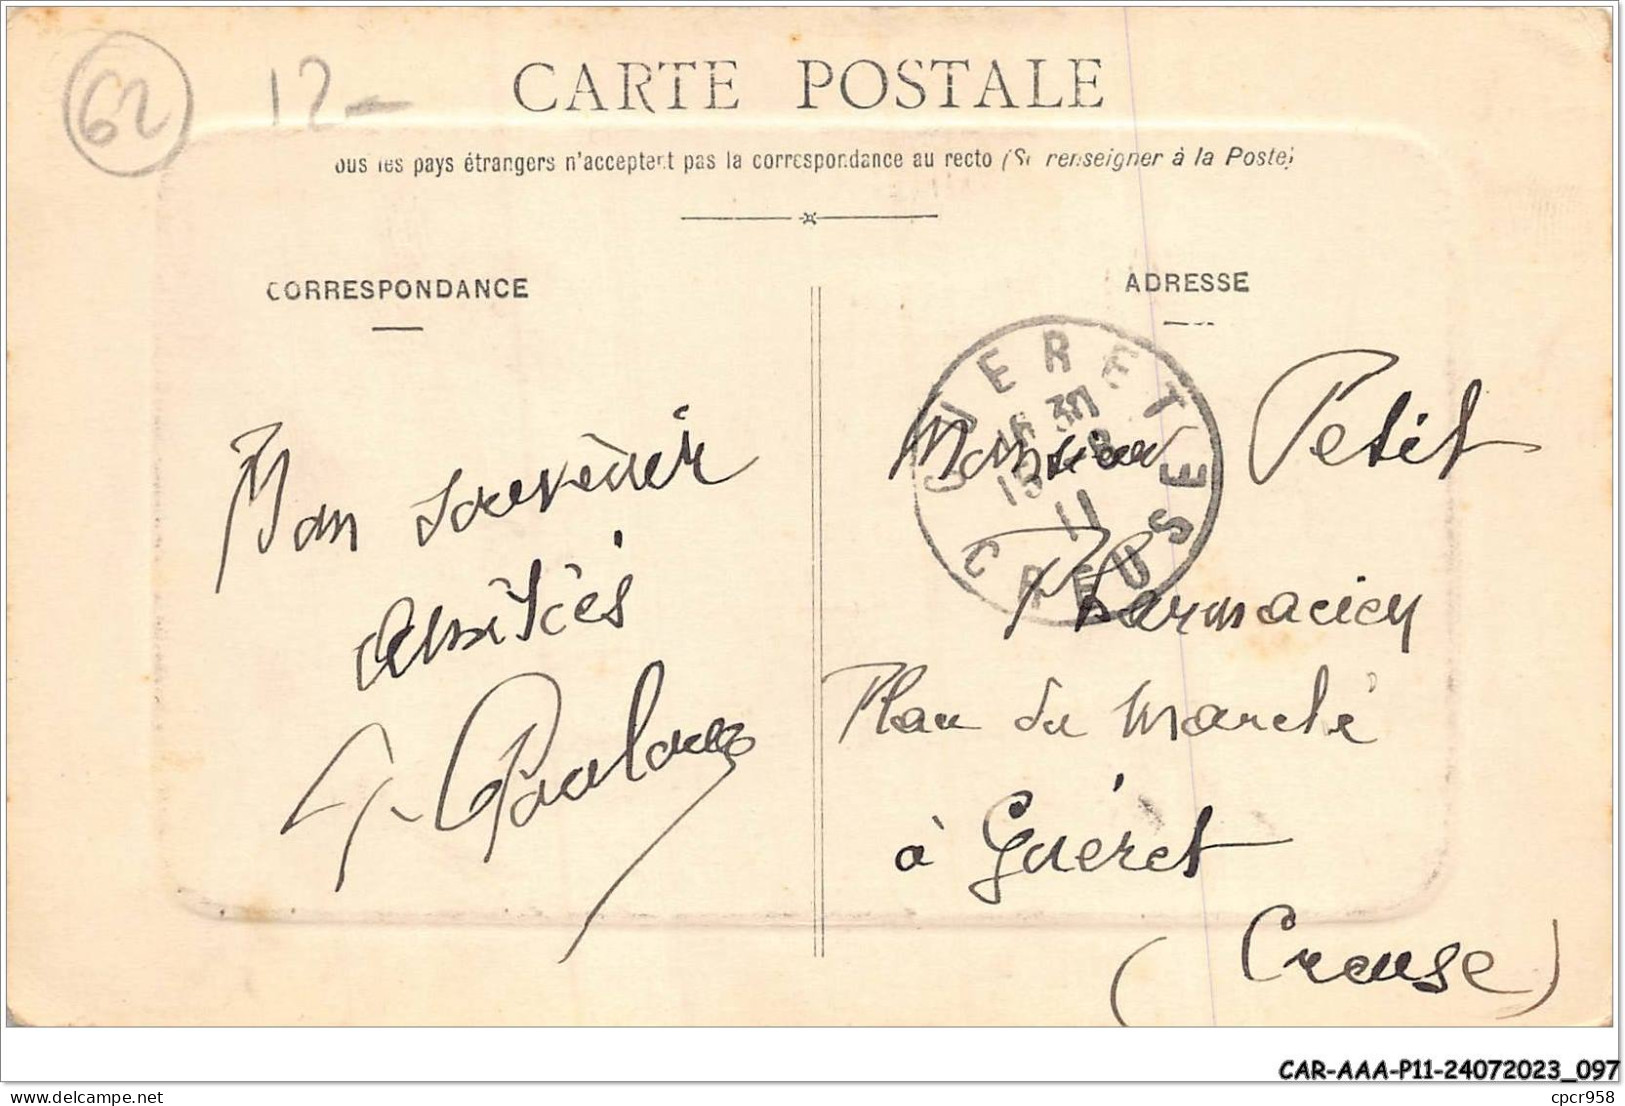 62 12-
CARTE POSTALE
ous les pays étrangers n'acceptent pas la correspondance au recto (Se renseigner à la Poste)
CORRESPONDANCE
ADRESSE
GUERET
16 30
15
11
CREUSE
Bon souvenir
amitiés
Monsieur Petit
Pharmacien
Place du Marché
à Guéret
(Creuse)
CAR-AAA-P11-24072023_097
delcampe.net
cpcr958